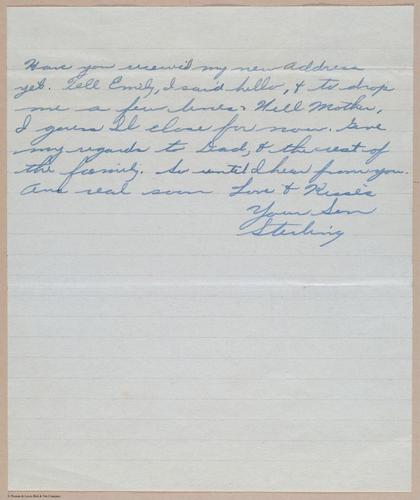 Have you receiv'd my new Address
yet. Tell Emily, I said hello, & to drop
me a few lines. Well Mother,
I guess I'll close for now. Give
my regards to Dad, & the rest of
the family. So until I hear from you.
Ans real soon Love & Kisses
Your Son
Sterling